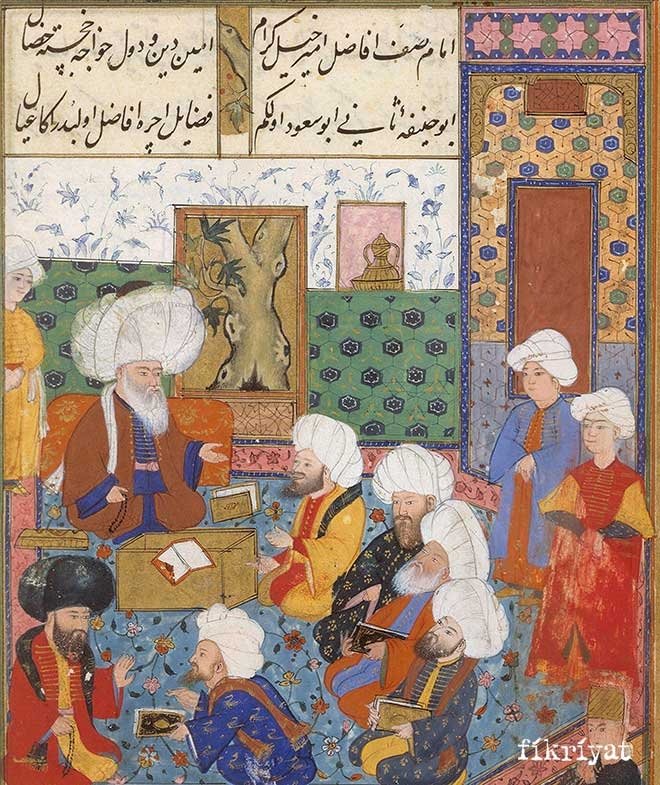 امام صف افاضل امیر خیل کرام
امین دین و دول خواجه خجسته خصال
ابو حنیفهٔ ثانی ابو سعود اولکم
فضایل اچره افاضل اولبدر اکا عیال
fíkríyat